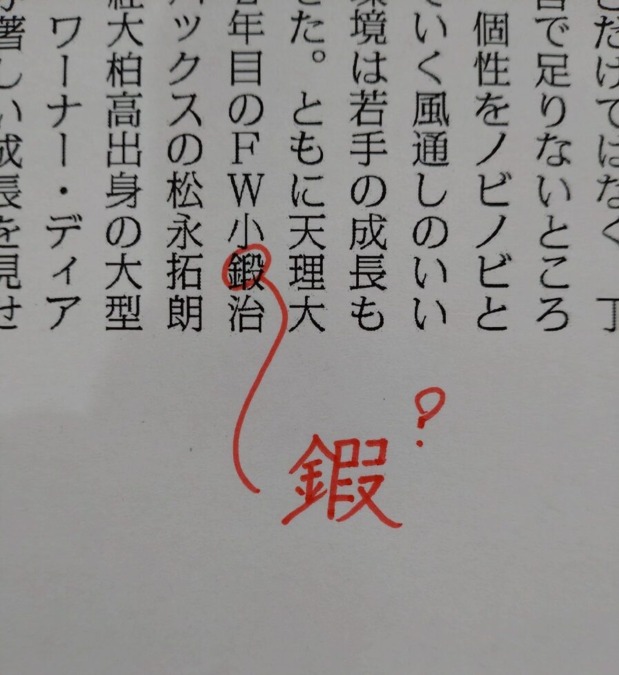 だけではなく　丁
で足りないところ
個性をノビノビと
ていく風通しのいい
環境は若手の成長も
た。ともに天理大
年目のＦＷ小鍛治
バックスの松永拓朗
大柏高出身の大型
ワーナー・ディア
著しい成長を見せ
鍜?